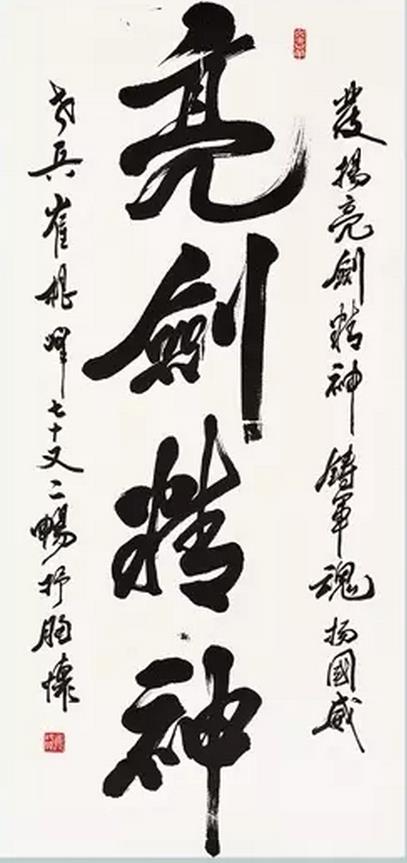 發揚亮劍精神鑄軍魂扬國威
亮劍精神
老兵崔峰七十又二暢抒胸懷